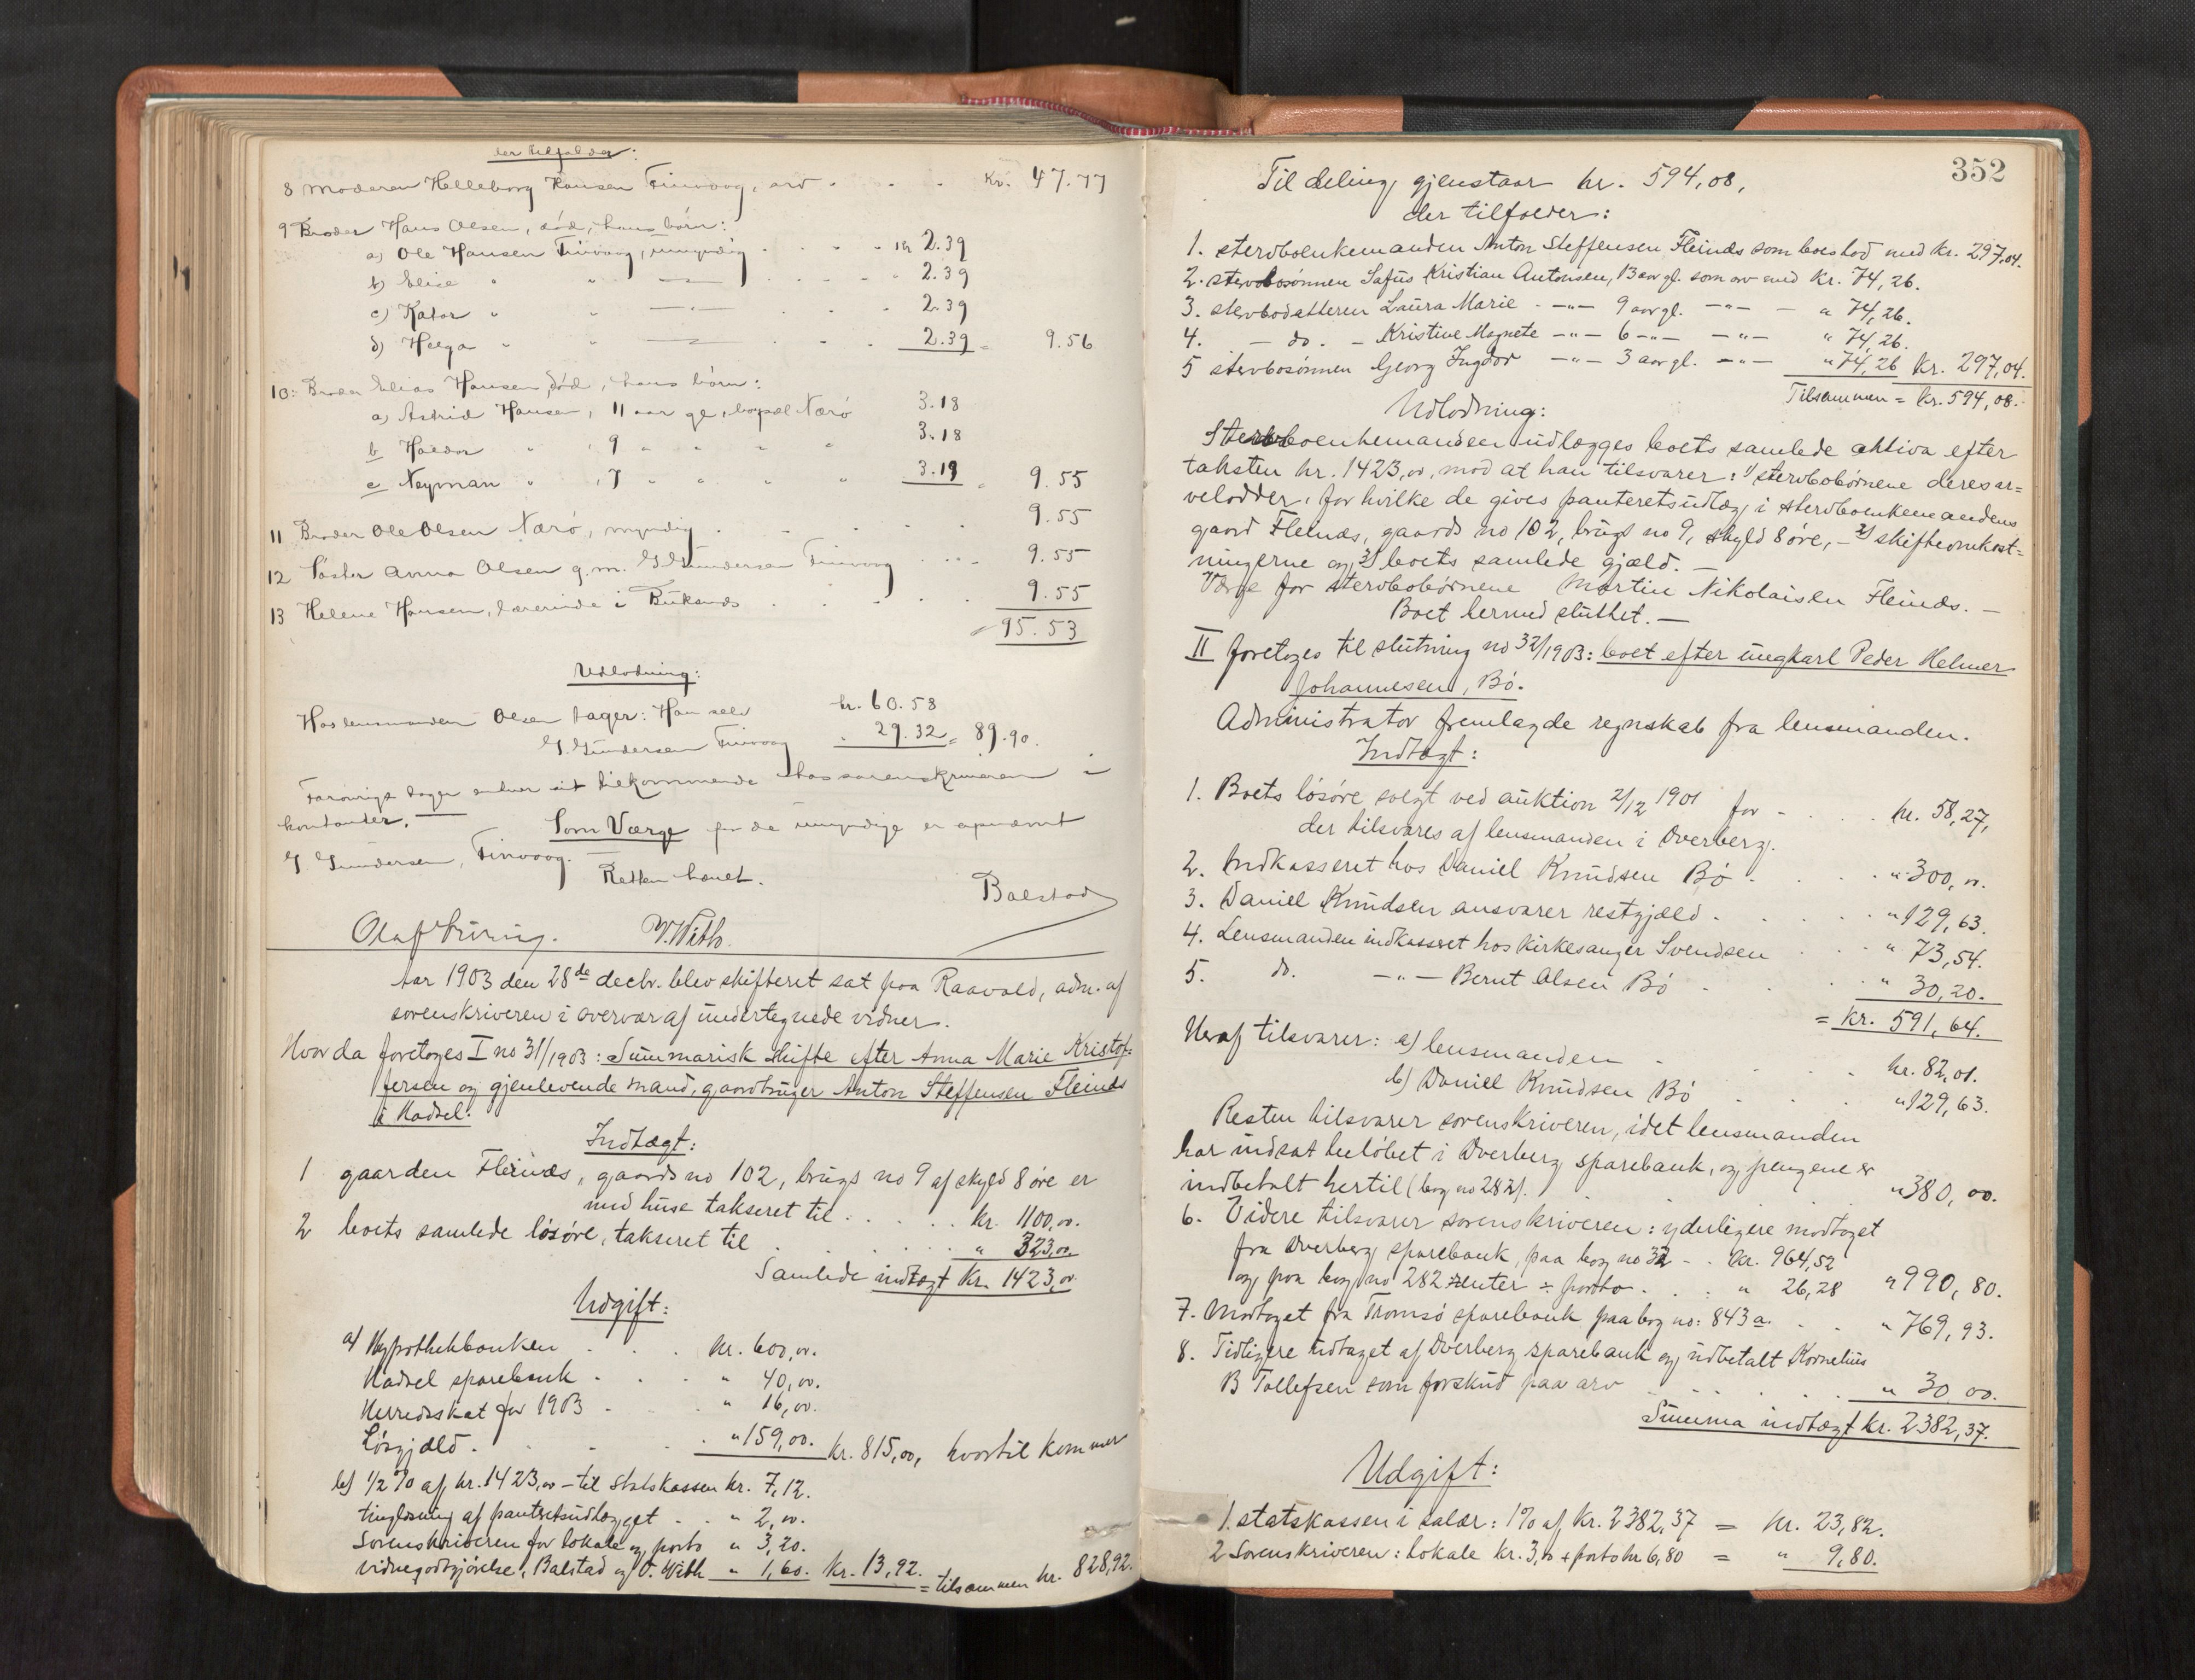 der tilfalder:
8 Moderen Helleborg Hansen Finvaag, arv . . . kr. 47.77
9 Broder Hans Olsen, død, hans børn:
a) Ole Hansen Finvaag, umyndig . . . kr 2.39
b) Elise " " —"— . . . " 2.39
c) Kator " " —"— . . . 2.39
d) Helga " " —"— . . . 2.39 = 9.56
10: Broder Elias Hansen, død, hans børn:
a) Astrid Hansen, 11 aar gl., bopæl Nærø 3.18
b Haldor " , 9 " " " " 3.18
c Neyman " , 7 " " " " 3.19 = 9.55
11 Broder Ole Olsen Nærø, myndig . . . 9.55
12 Søster Anna Olsen g. m. G. Gundersen Finvaag . . . 9.55
13 Helene Hansen, lærerinde i Buksnæs . . . 9.55
= 95.53
Udlodning:
Hos lensmanden Olsen tager: Han selv kr. 60.58
G. Gundersen Finvaag " 29.32 = 89.90.
Forøvrigt tager enhver sit tilkommende hos sorenskriveren i
kontanter. Som Værge for de umyndige er opnævnt
G Gundersen, Finvaag.
Retten hævet.
Balstad
Olaf During. V. With.
Aar 1903 den 28de decbr. blev skifteret sat paa Raavold, adm. af
sorenskriveren i overvær af undertegnede vidner.
Hvor da foretoges I no 31/1903: Summarisk skifte efter Anna Marie Kristof=
fersen og gjenlevende mand, gaardbruger Anton Steffensen Fleinæs
i Hadsel.
Indtægt:
1 gaarden Fleinæs, gaards no 102, brugs no 9 af skyld 8 øre er
med huse takseret til . . . kr. 1100,00.
2 boets samlede løsøre, takseret til . . . " 323,00
Samlede indtægt kr. 1423,00
Udgift:
a) Hypothekbanken . . . kr. 600,00.
Hadsel sparebank . . . " 40,00.
Herredsskat for 1903 . . . " 16,00.
Løsgjæld . . . " 159,00. kr. 815,00, hvortil kommer
b) 1/2 % af kr. 1423,00 - til statskassen kr. 7,12.
tinglæsning af panteretsudlægget . . " 2,00.
Sorenskriveren for lokale og porto " 3,20.
vidnegodtgjørelse, Balstad og V. With " 1,60. kr. 13,92. = tilsammen kr. 828,92.
352
Til deling gjenstaar kr. 594,08,
der tilfalder:
1. stervboenkemanden Anton Steffensen Fleinæs som boeslod med kr. 297,04.
2. stervbosønnen Safus Kristian Antonsen, 13 aar gl. som arv med kr. 74,26.
3. stervbodatteren Laura Marie - —"— 9 aar gl. —"— - " 74,26.
4. — do. — Kristine Magnete —"— 6 —"— —"— " 74,26.
5 stervbosønnen Georg Ingdor —"— 3 aar gl. —"— " 74,26 kr. 297,04.
Tilsammen = kr. 594,08.
Udlodning:
Stervboenkemanden udlægges boets samlede aktiva efter
taksten kr. 1423,00, mod at han tilsvarer: 1) stervbobørnene deres ar=
velodder, for hvilke de gives panteretsudlæg i stervboenkemandens
gaard Fleinæs, gaards no 102, brugs no 9, skyld 8 øre, - 2) skifteomkost=
ningerne og 3) boets samlede gjæld. —
Værge for stervbobørnene Martin Nikolaisen Fleinæs. —
Boet hermed sluttet. —
II foretoges til slutning no 32/1903: boet efter ungkarl Peder Helmer
Johannesen, Bø.
Administrator fremlagde regnskab fra lensmanden.
Indtægt:
1. Boets løsøre solgt ved auktion 2/12 1901 for - . . . kr. 58,27,
der tilsvares af lensmanden i Dverberg.
2. Indkasseret hos Daniel Knudsen Bø . . . " 300,00.
3. Daniel Knudsen ansvarer restgjæld . . . " 129,63.
4. Lensmanden indkasseret hos Kirkesanger Svendsen . . " 73,54.
5. do. —"— Bernt Olsen Bø . . . " 30,20.
= kr. 591,64.
Heraf tilsvarer: a) lensmanden . . . kr. 82,01.
b) Daniel Knudsen Bø . . . " 129,63.
Resten tilsvarer sorenskriveren, idet lensmanden
har indsat beløbet i Dverberg sparebank, og pengene er
indbetalt hertil (bog no 282). . . . " 380,00.
6. Videre tilsvarer sorenskriveren: yderligere modtaget
fra Dverberg sparebank, paa bog no 32 - . kr. 964,52
og paa bog no 282 renter ÷ porto . . . " 26,28 " 990,80.
7. Modtaget fra Tromsø sparebank paa bog no: 843a. . . " 769,93.
8. Tidligere udtaget af Dverberg sparebank og udbetalt Kornelius
B Tollefsen som forskud paa arv . . . " 30,00.
Summa indtægt kr. 2382,37.
Udgift:
1. statskassen i salær: 1% af kr. 2382,37 = kr. 23,82.
2 Sorenskriveren: lokale kr. 3,00 + porto kr 6,80 = " 9,80.